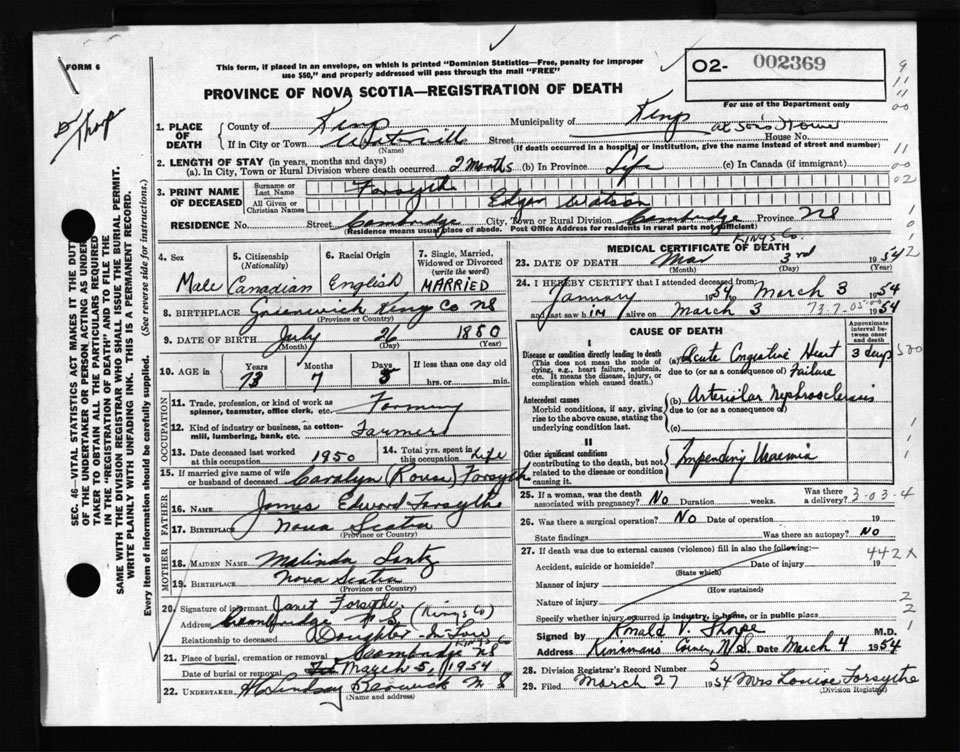 FORM 6
This form, if placed in an envelope, on which is printed "Dominion Statistics—Free, penalty for improper
use $50," and properly addressed will pass through the mail "FREE"
O2- 002369
PROVINCE OF NOVA SCOTIA—REGISTRATION OF DEATH
For use of the Department only
Dr Thorpe
1. PLACE OF DEATH
County of Kings Municipality of Kings
at Son's Home
If in City or Town Waterville Street House No.
(Name) (If death occurred in a hospital or institution, give the name instead of street and number)
2. LENGTH OF STAY (in years, months and days)
(a). In City, Town or Rural Division where death occurred 2 Months (b) In Province Life (c) In Canada (if immigrant)
3. PRINT NAME OF DECEASED
Surname or Last Name Forsythe
All Given or Christian Names Edgar Watson
RESIDENCE No. Street Cambridge City, Town or Rural Division Cambridge Province NS
(Residence means usual place of abode. Post Office Address for residents in rural parts not sufficient)
Kings Co.
4. Sex
Male
5. Citizenship
(Nationality)
Canadian
6. Racial Origin
English
7. Single, Married,
Widowed or Divorced
(write the word)
MARRIED
8. BIRTHPLACE Greenwich Kings Co NS
(Province or Country)
9. DATE OF BIRTH July 26 1880
(Month) (Day) (Year)
10. AGE in Years Months Days If less than one day old
73 7 5 hrs. or min.
OCCUPATION
11. Trade, profession, or kind of work as
spinner, teamster, office clerk, etc. Farming
12. Kind of industry or business, as cotton-
mill, lumbering, bank, etc. Farmer
13. Date deceased last worked
at this occupation 1950
14. Total yrs. spent in
this occupation Life
15. If married give name of wife
or husband of deceased Caralyn (Rouse) Forsythe
FATHER
16. Name James Edward Forsythe
17. Birthplace Nova Scotia
(Province or Country)
MOTHER
18. MAIDEN NAME Malinda Lantz
19. BIRTHPLACE Nova Scotia
(Province or Country)
20. Signature of informant Janet Forsythe
Address Cambridge N S (Kings Co)
Relationship to deceased Daughter-In-Law
Kings Co
21. Place of burial, cremation or removal Cambridge NS
Date of burial or removal March 5, 1954
22. UNDERTAKER H C Lindsay Berwick N S
(Name and address)
MEDICAL CERTIFICATE OF DEATH
23. DATE OF DEATH Mar 3rd 1954
(Month) (Day) (Year)
24. I HEREBY CERTIFY that I attended deceased from
January 1954 to March 3 1954
and last saw him alive on March 3 1954
CAUSE OF DEATH
Approximate interval between onset and death
I
Disease or condition directly leading to death
(This does not mean the mode of
dying, e.g., heart failure, asthenia,
etc. It means the disease, injury, or
complication which caused death.)
(a) Acute Congestive Heart 3 days
due to (or as a consequence of) Failure
Antecedent causes
Morbid conditions, if any, giving
rise to the above cause, stating the
underlying condition last.
(b) Arteriolar Nephrosclerosis
due to (or as a consequence of)
(c)
II
Other significant conditions
contributing to the death, but not
related to the disease or condition
causing it.
Impending Uraemia
25. If a woman, was the death
associated with pregnancy? No Duration weeks. Was there
a delivery?
3-03-4
26. Was there a surgical operation? No Date of operation 19
State findings Was there an autopsy? No
27. If death was due to external causes (violence) fill in also the following:—
442X
Accident, suicide or homicide? Date of injury 19
(State which)
Manner of injury
(How sustained)
Nature of injury
Specify whether injury occurred in industry, in home, or in public place
Signed by Ronald V. Thorpe M.D.
Address Kinsmans Corner, N.S. Date March 4 1954
28. Division Registrar's Record Number 5
29. Filed March 27 1954 Mrs Louise Forsythe
(Division Registrar)
SEC. 46—VITAL STATISTICS ACT MAKES IT THE DUTY
OF THE UNDERTAKER OR PERSON ACTING AS UNDERTAKER
TO OBTAIN ALL THE PARTICULARS REQUIRED
IN THE "REGISTRATION OF DEATH" AND TO FILE THE
SAME WITH THE DIVISION REGISTRAR WHO SHALL ISSUE THE BURIAL PERMIT.
WRITE PLAINLY WITH UNFADING INK. THIS IS A PERMANENT RECORD.
Every item of information should be carefully supplied. (See reverse side for instructions.)